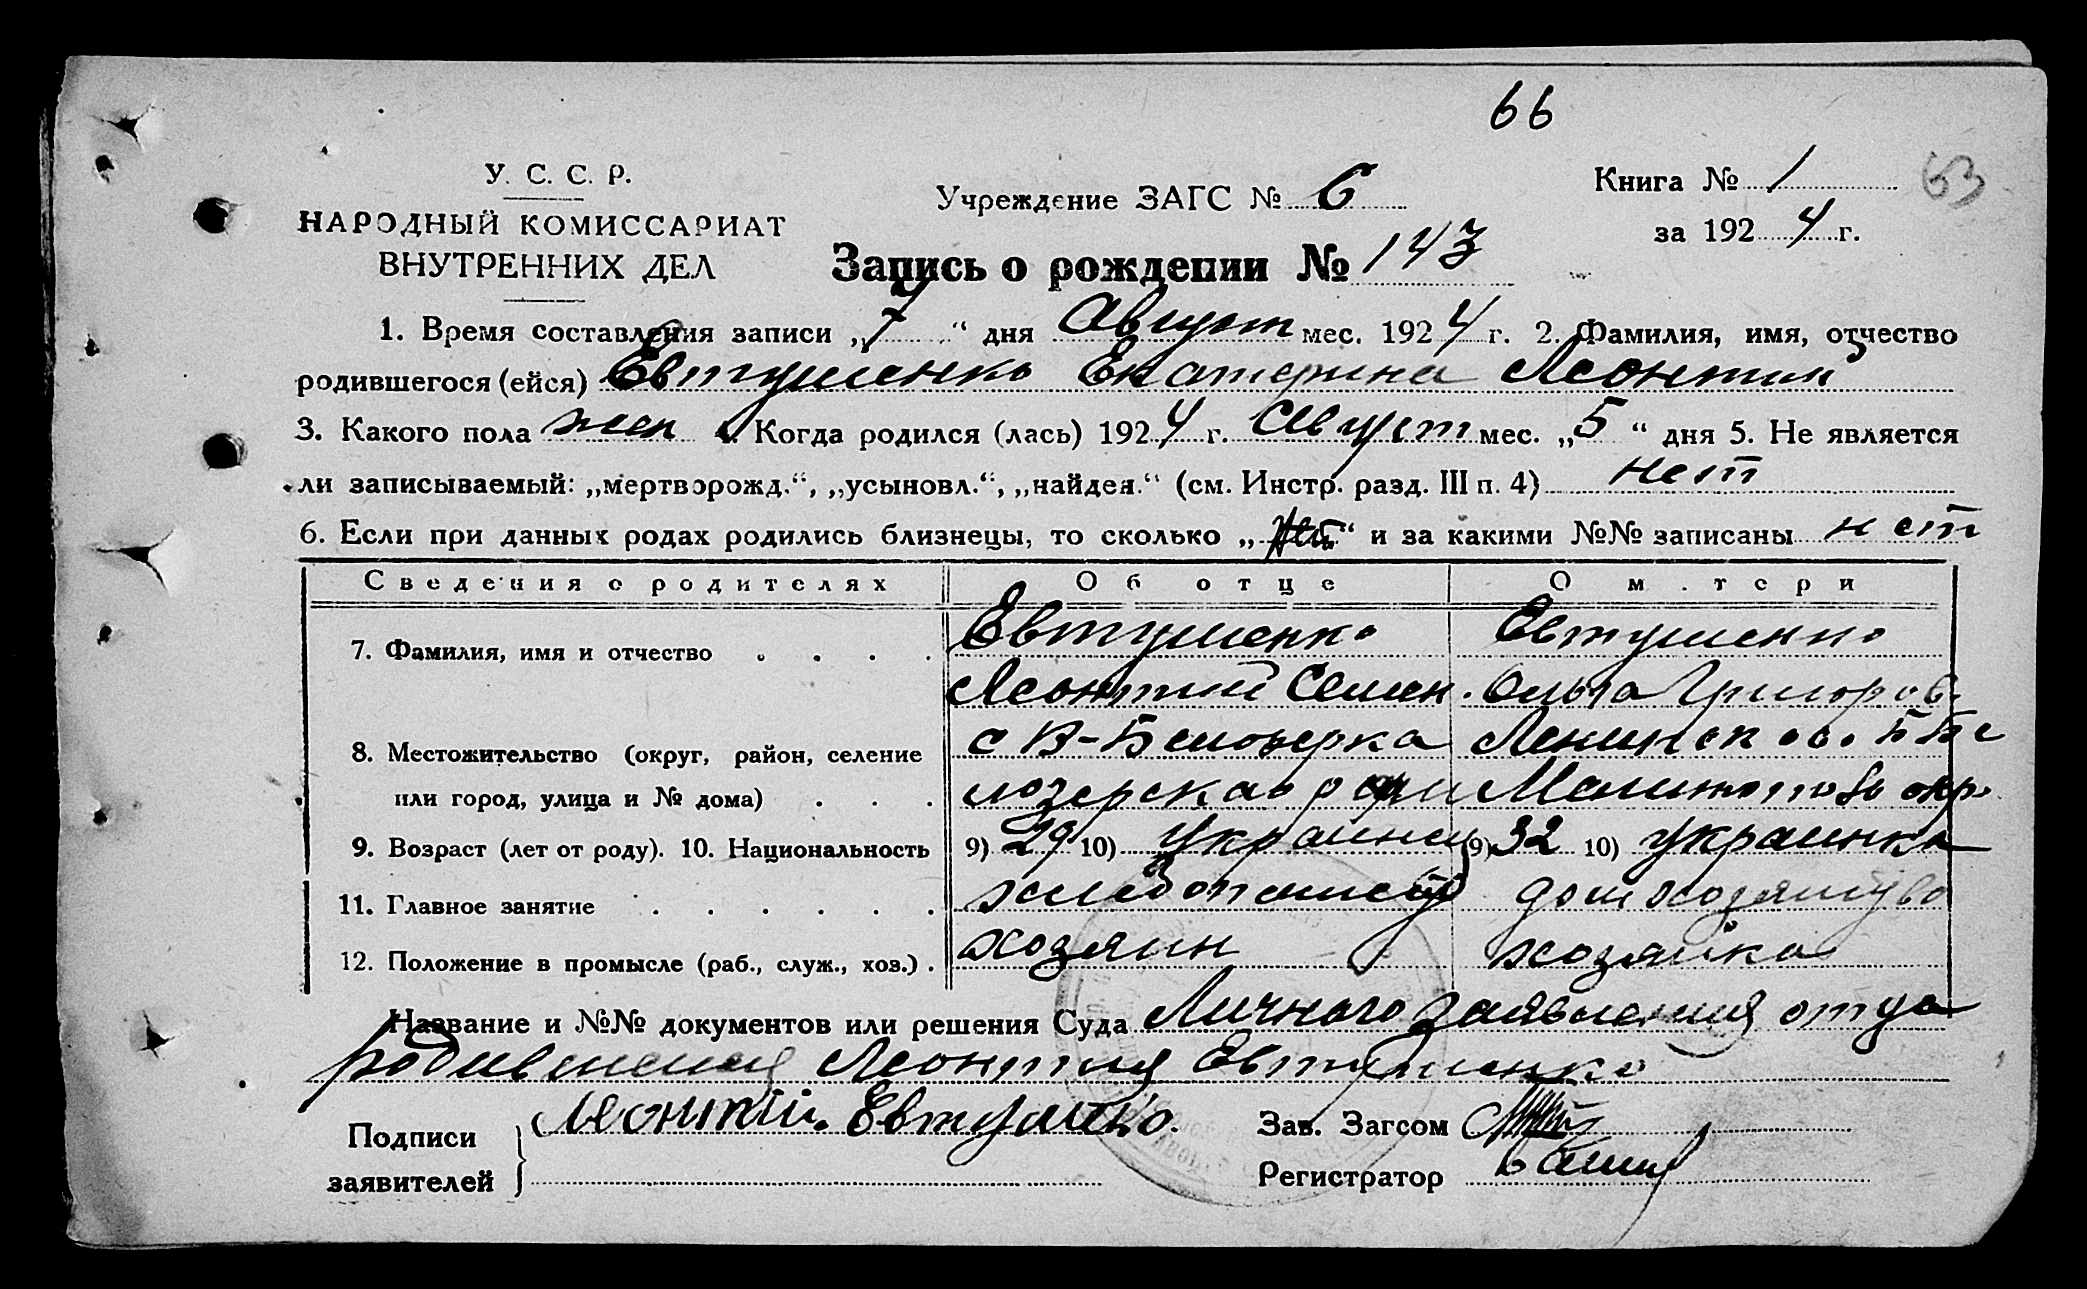 66
У. С. С. Р.
НАРОДНЫЙ КОМИССАРИАТ
ВНУТРЕННИХ ДЕЛ
Учреждение ЗАГС № 6
Книга № 1
63
за 1924 г.
Запись о рождении № 143
1. Время составления записи „7“ дня Август мес. 1924 г. 2. Фамилия, имя, отчество
родившегося (ейся) Евтушенко Екатерина Леонтий
3. Какого пола жен 4. Когда родился (лась) 1924 г. Август мес. „5“ дня 5. Не является
ли записываемый: „мертворожд.“, „усыновл.“, „найден.“ (см. Инстр. разд. III п. 4) нет
6. Если при данных родах родились близнецы, то сколько „нет“ и за какими №№ записаны нет
Сведения о родителях Об отце О матери
7. Фамилия, имя и отчество Евтушенко Евтушенко
Леонтий Семен. Ольга Григоров.
8. Местожительство (округ, район, селение с В-Белозерка Ленинск
или город, улица и № дома) лозерская Мелитопов окр.
9. Возраст (лет от роду). 10. Национальность 9) 29 10) украинец 9) 32 10) украинка
11. Главное занятие хлебопашество дом хозяйство
12. Положение в промысле (раб., служ., хоз.) хозяин хозяйка
Название и №№ документов или решения Суда Личного заявления отца
родившегося Леонтия Евтушенко
Подписи заявителей Леонтий Евтушенко.
Зав. Загсом
Регистратор